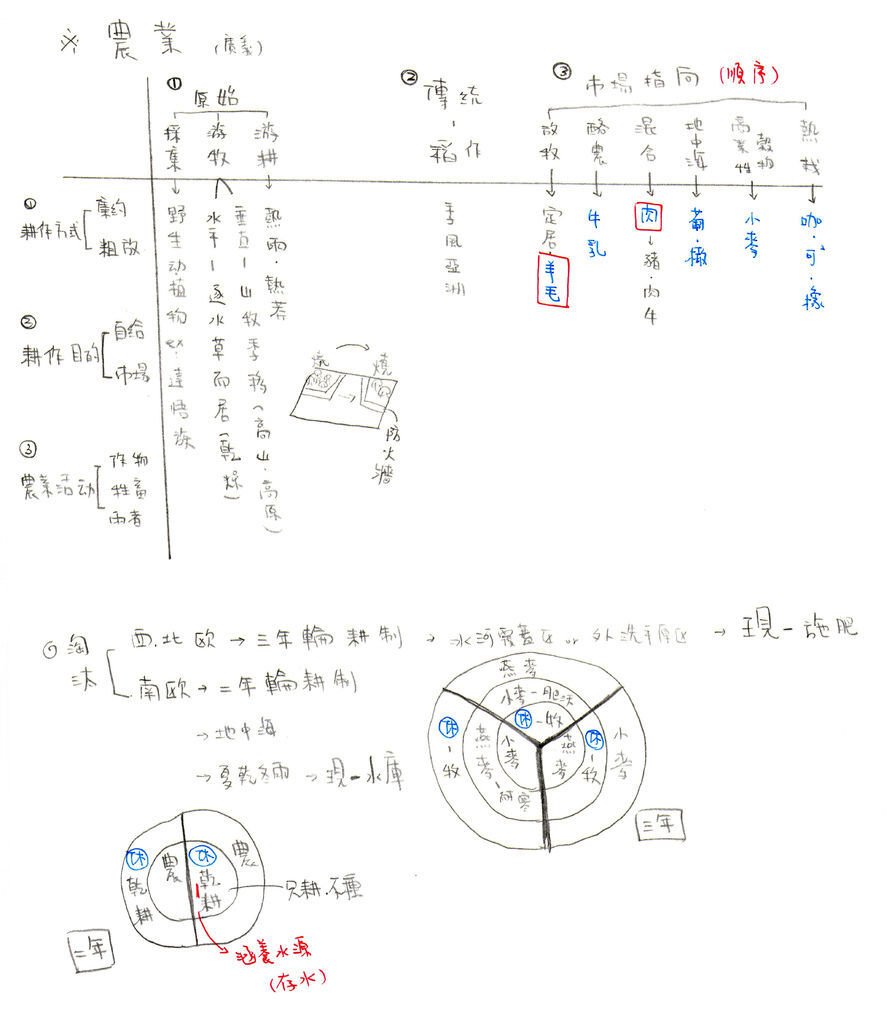 ※ 農業 (廣義)
① 原始
採集
游牧
游耕
② 傳統-稻作
③ 市場指向 (順序)
放牧
酪農
混合
地中海
商業性穀物
熱栽
① 耕作方式
集約
粗放
② 耕作目的
自給
市場
③ 農業活动
作物
牲畜
兩者
野生动.植物 ex.達悟族
水平-逐水草而居(乾燥)
垂直-山牧季移(高山.高原)
熱雨.熱莽
季風亞洲
定居.羊毛
牛乳
肉
豬.肉牛
葡.橄
小麥
咖.可².橡
燒
燒
防火牆
① 淘汰
西.北欧→三年輪耕制→冰河覆蓋区 or 外洗平原区→現-施肥
南欧→二年輪耕制
→地中海
→夏乾冬雨→現-水庫
燕麥
小麥-肥沃
休-牧
休-牧
燕麥-耐寒
小麥
燕麥
休-牧
小麥
三年
休
乾耕
農
休
乾耕
農
只耕.不種
二年
涵養水源
(存水)